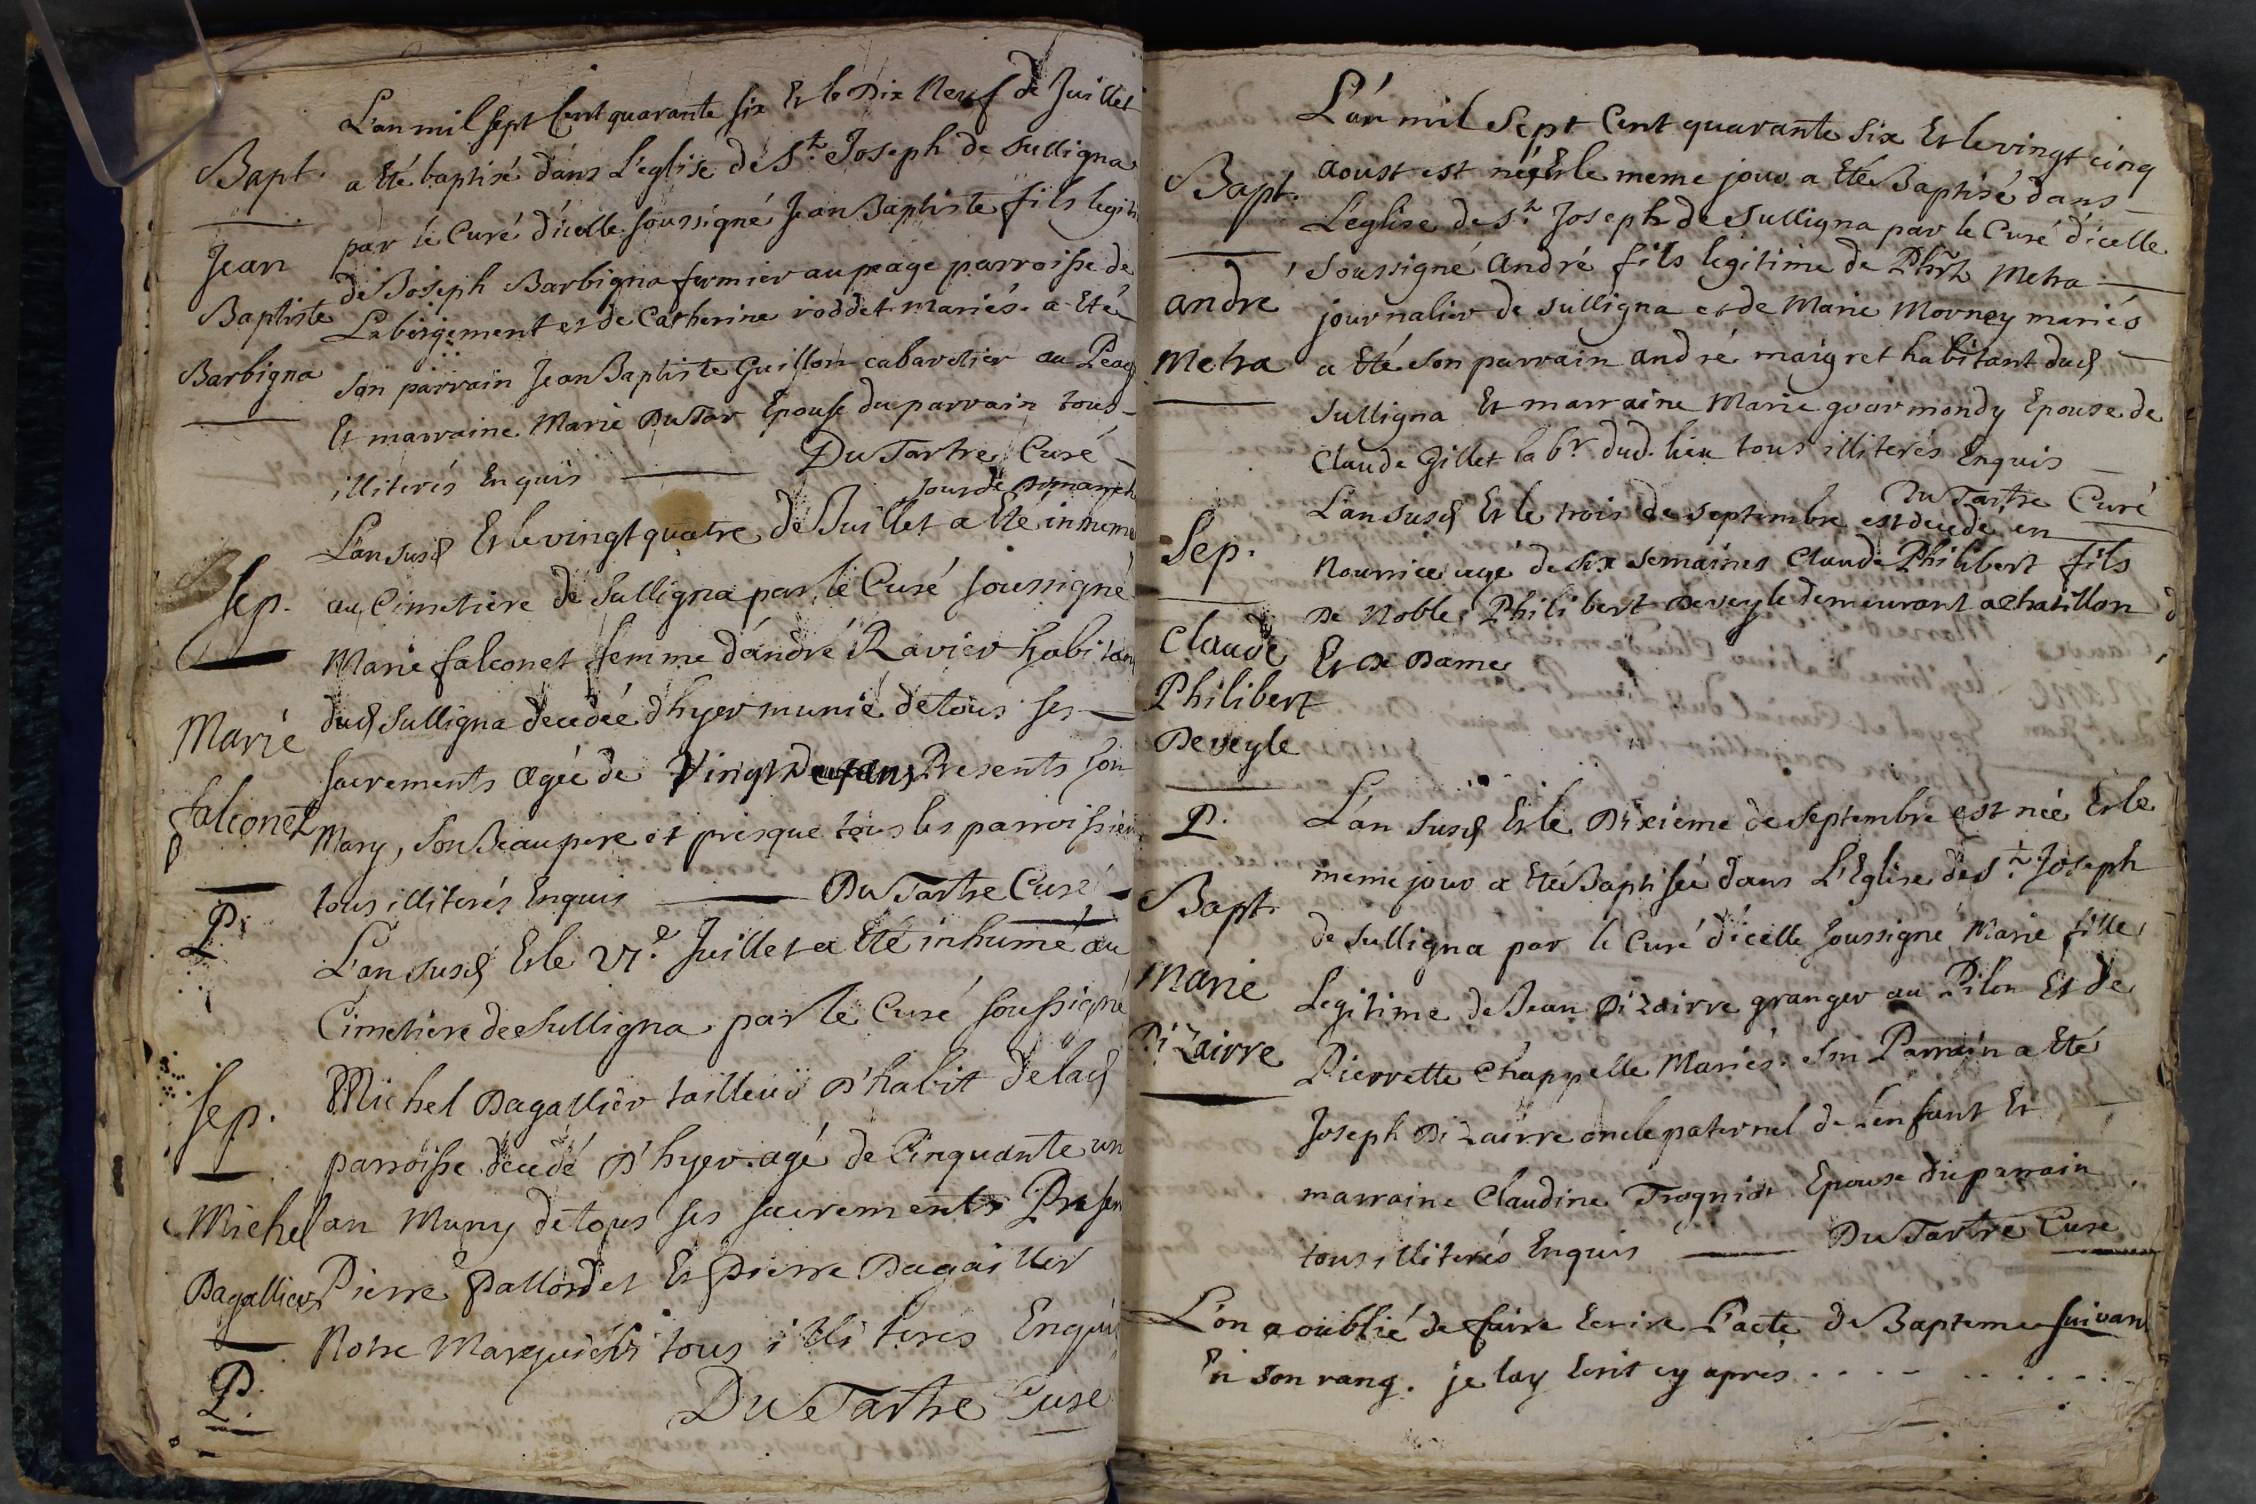 L'an mil sept Cent quarante six Et le Dix Neuf de Juillet
Bapt. a Eté baptisé dans L'eglise de St. Joseph de Sulligna
par le Curé d'icelle soussigné Jean Baptiste fils legiti
Jean
de Joseph Barbigna fermier au peage parroisse de
Baptiste
Labergement et de Catherine roddet mariés. a Eté
Barbigna
son parrain Jean Baptiste Guillon cabaretier au Peag
Et marraine Marie DuTar Epouse du parrain tous
illiterés Enquis DuTartre Curé
jour de Dimanch
L'an susd Et le vingt quatre de Juillet a Eté inhume
Sep. au Cimetière de Sulligna par le Curé soussigné
Marie falconet femme d'andré Ravier habitan
dud Sulligna decedée d'hyer munie de tous ses
Marie
sacrements agée de Vingt Deux ans Presents son
falconet
Mary, son Beaupere et presque tous les parroissien
tous illiterés Enquis DuTartre Curé
P.
L'an susd Et le 27.e Juillet a Eté inhumé au
Cimetière de Sulligna par le Curé soussigné
Sep. Michel Dagallier tailleur D'habit de lad
parroisse decedé D'hyer agé de Cinquante un
Michel an Muny de tous ses sacrements Presen
Dagallier Pierre Pallordet Et Pierre Dagallier
Notre Marguiélli tous illiteres Enquis
P. DuTartre Curé
L'an mil Sept Cent quarante Six Et le vingt cinq
Bapt. aoust est né, Et le meme jour a Eté Baptisé dans
Leglise de St. Joseph de Sulligna par le Curé d'icelle
andré Soussigné André fils legitime de Phrt Metra
journalier de Sulligna et de Marie Mornay mariés
Metra a Eté son parrain andré maigret habitant dud
Sulligna Et marraine Marie gourmondy Epouse de
Claude Gillet labr. dud. lieu tous illiterés Enquis
DuTartre Curé
L'an susd Et le trois de septembre est decedé en
Sep. Nourrice agé de six semaines Claude Philibert fils
De Noble Philibert Deveyle demeurant a Chatillon
Claude Et De Dame
Philibert
Deveyle
P. L'an susd Et le Dixième de Septembre est née Et le
meme jour a Eté Baptisée dans L'Eglise de St. Joseph
Bapt. de Sulligna par le Curé d'icelle soussigné Marie fille
Marie Legitime de Jean Dizairre granger au Pilon Et de
Dizairre Pierrette Chappelle Mariés. Son Parrain a Eté
Joseph Dizairre oncle paternel de L'enfant Et
marraine Claudine Trognion Epouse du parrain
tous illiterés Enquis DuTartre Curé
L'on a oublié de faire Ecrire L'acte de Bapteme suivant
En son rang. je lay Ecrit cy après . . . . . . . . .